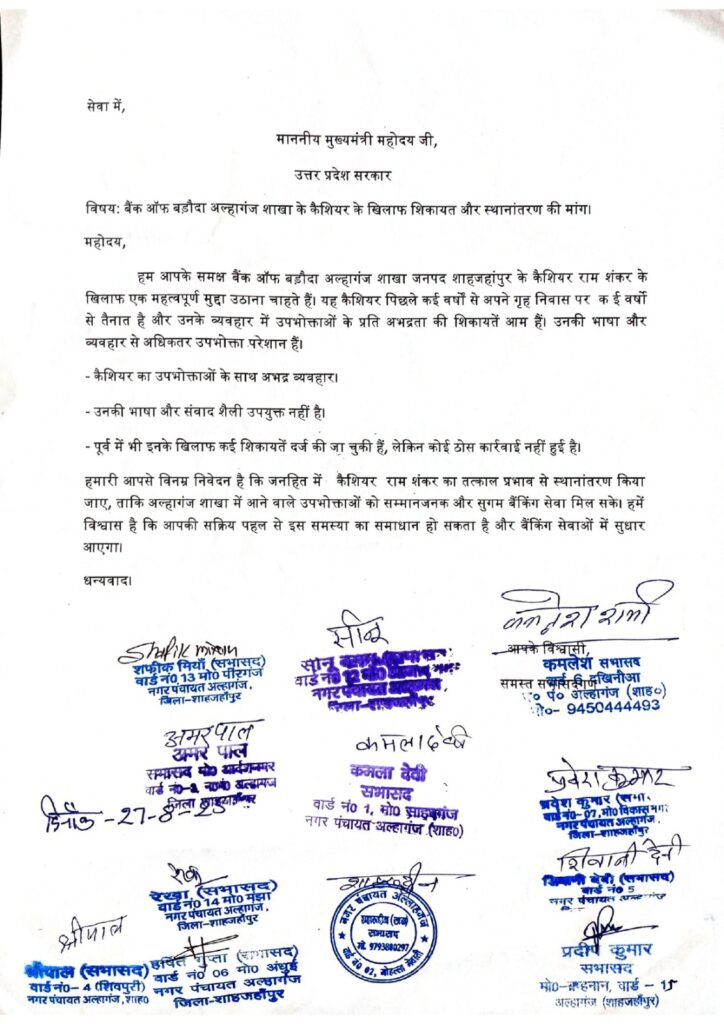 सेवा में,
माननीय मुख्यमंत्री महोदय जी,
उत्तर प्रदेश सरकार
विषय: बैंक ऑफ बड़ौदा अल्हागंज शाखा के कैशियर के खिलाफ शिकायत और स्थानांतरण की मांग।
महोदय,
हम आपके समक्ष बैंक ऑफ बड़ौदा अल्हागंज शाखा जनपद शाहजहांपुर के कैशियर राम शंकर के
खिलाफ एक महत्वपूर्ण मुद्दा उठाना चाहते हैं। यह कैशियर पिछले कई वर्षों से अपने गृह निवास पर क ई वर्षों
से तैनात है और उनके व्यवहार में उपभोक्ताओं के प्रति अभद्रता की शिकायतें आम हैं। उनकी भाषा और
व्यवहार से अधिकतर उपभोक्ता परेशान हैं।
- कैशियर का उपभोक्ताओं के साथ अभद्र व्यवहार।
- उनकी भाषा और संवाद शैली उपयुक्त नहीं है।
- पूर्व में भी इनके खिलाफ कई शिकायतें दर्ज की जा चुकी हैं, लेकिन कोई ठोस कार्रवाई नहीं हुई है।
हमारी आपसे विनम्र निवेदन है कि जनहित में कैशियर राम शंकर का तत्काल प्रभाव से स्थानांतरण किया
जाए, ताकि अल्हागंज शाखा में आने वाले उपभोक्ताओं को सम्मानजनक और सुगम बैंकिंग सेवा मिल सके। हमें
विश्वास है कि आपकी सक्रिय पहल से इस समस्या का समाधान हो सकता है और बैंकिंग सेवाओं में सुधार
आएगा।
धन्यवाद।
आपके विश्वासी,
कमलेश सभासद
समस्त
अल्हागंज (शाह०)
मो०- 9450444493
शफीक मियाँ (सभासद)
वार्ड नं0 13 मो0 पीरगंज
नगर पंचायत अल्हागंज,
जिला-शाहजहाँपुर
सोनू
नगर पंचायत
जिला-शाहजहाँपुर
अमरपाल
अमर पाल
सभासद मो0
जिला
कमला देवी
कमला देवी
सभासद
वार्ड नं0 1, मो0 साहबगंज
नगर पंचायत अल्हागंज (शाह०)
प्रवेश कुमार
प्रवेश कुमार (सभा.
वार्ड नं0-07, मो0 विकास नगर
नगर पंचायत अल्हागंज
जिला-शाहजहाँपुर
दिनांक -27-8-25
शिवानी देवी
शिवानी देवी (सभासद)
वार्ड नं0 5
नगर पंचायत अल्हागंज
रेखा
रेखा (सभासद)
वार्ड नं0 14 मो0 मंझा
नगर पंचायत अल्हागंज,
जिला-शाहजहाँपुर
नगर पंचायत अल्लाहगंज
सभासद
मो. 9793880297
वार्ड नं० 02, मोहल्ला
श्रीपाल
श्रीपाल (सभासद)
वार्ड नं०- 4 (शिवपुरी)
नगर पंचायत अल्हागंज, शाह०
गुप्ता (सभासद)
वार्ड नं0 06 मो0
नगर पंचायत अल्हागंज
जिला-शाहजहाँपुर
प्रदीप कुमार
सभासद
मो०-बाहनान, वार्ड - 15
अल्हागंज (शाहजहाँपुर)